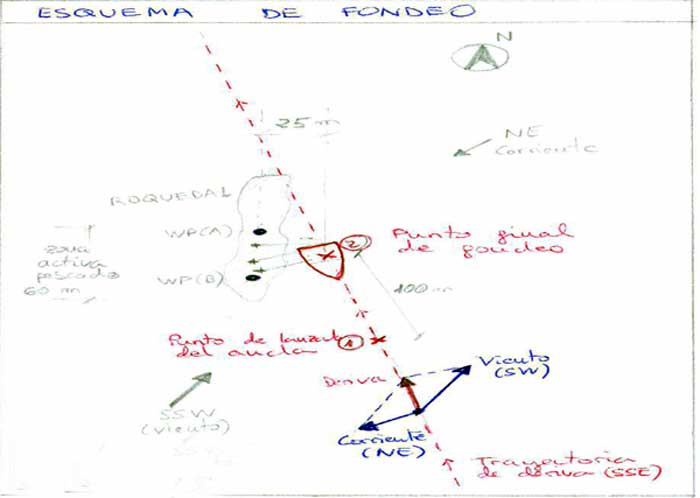 ESQUEMA DE FONDEO
N
25 m
NE
Corriente
ROQUEDAL
WP(A)
2
Punto final
de fondeo
zona
activa
pescado
60 m
WP(B)
100 m
Punto de lanzad
del ancla
1
Deriva
Viento
(SW)
SSW
(viento)
Corriente
(NE)
Trayectoria
de deriva (SSE)